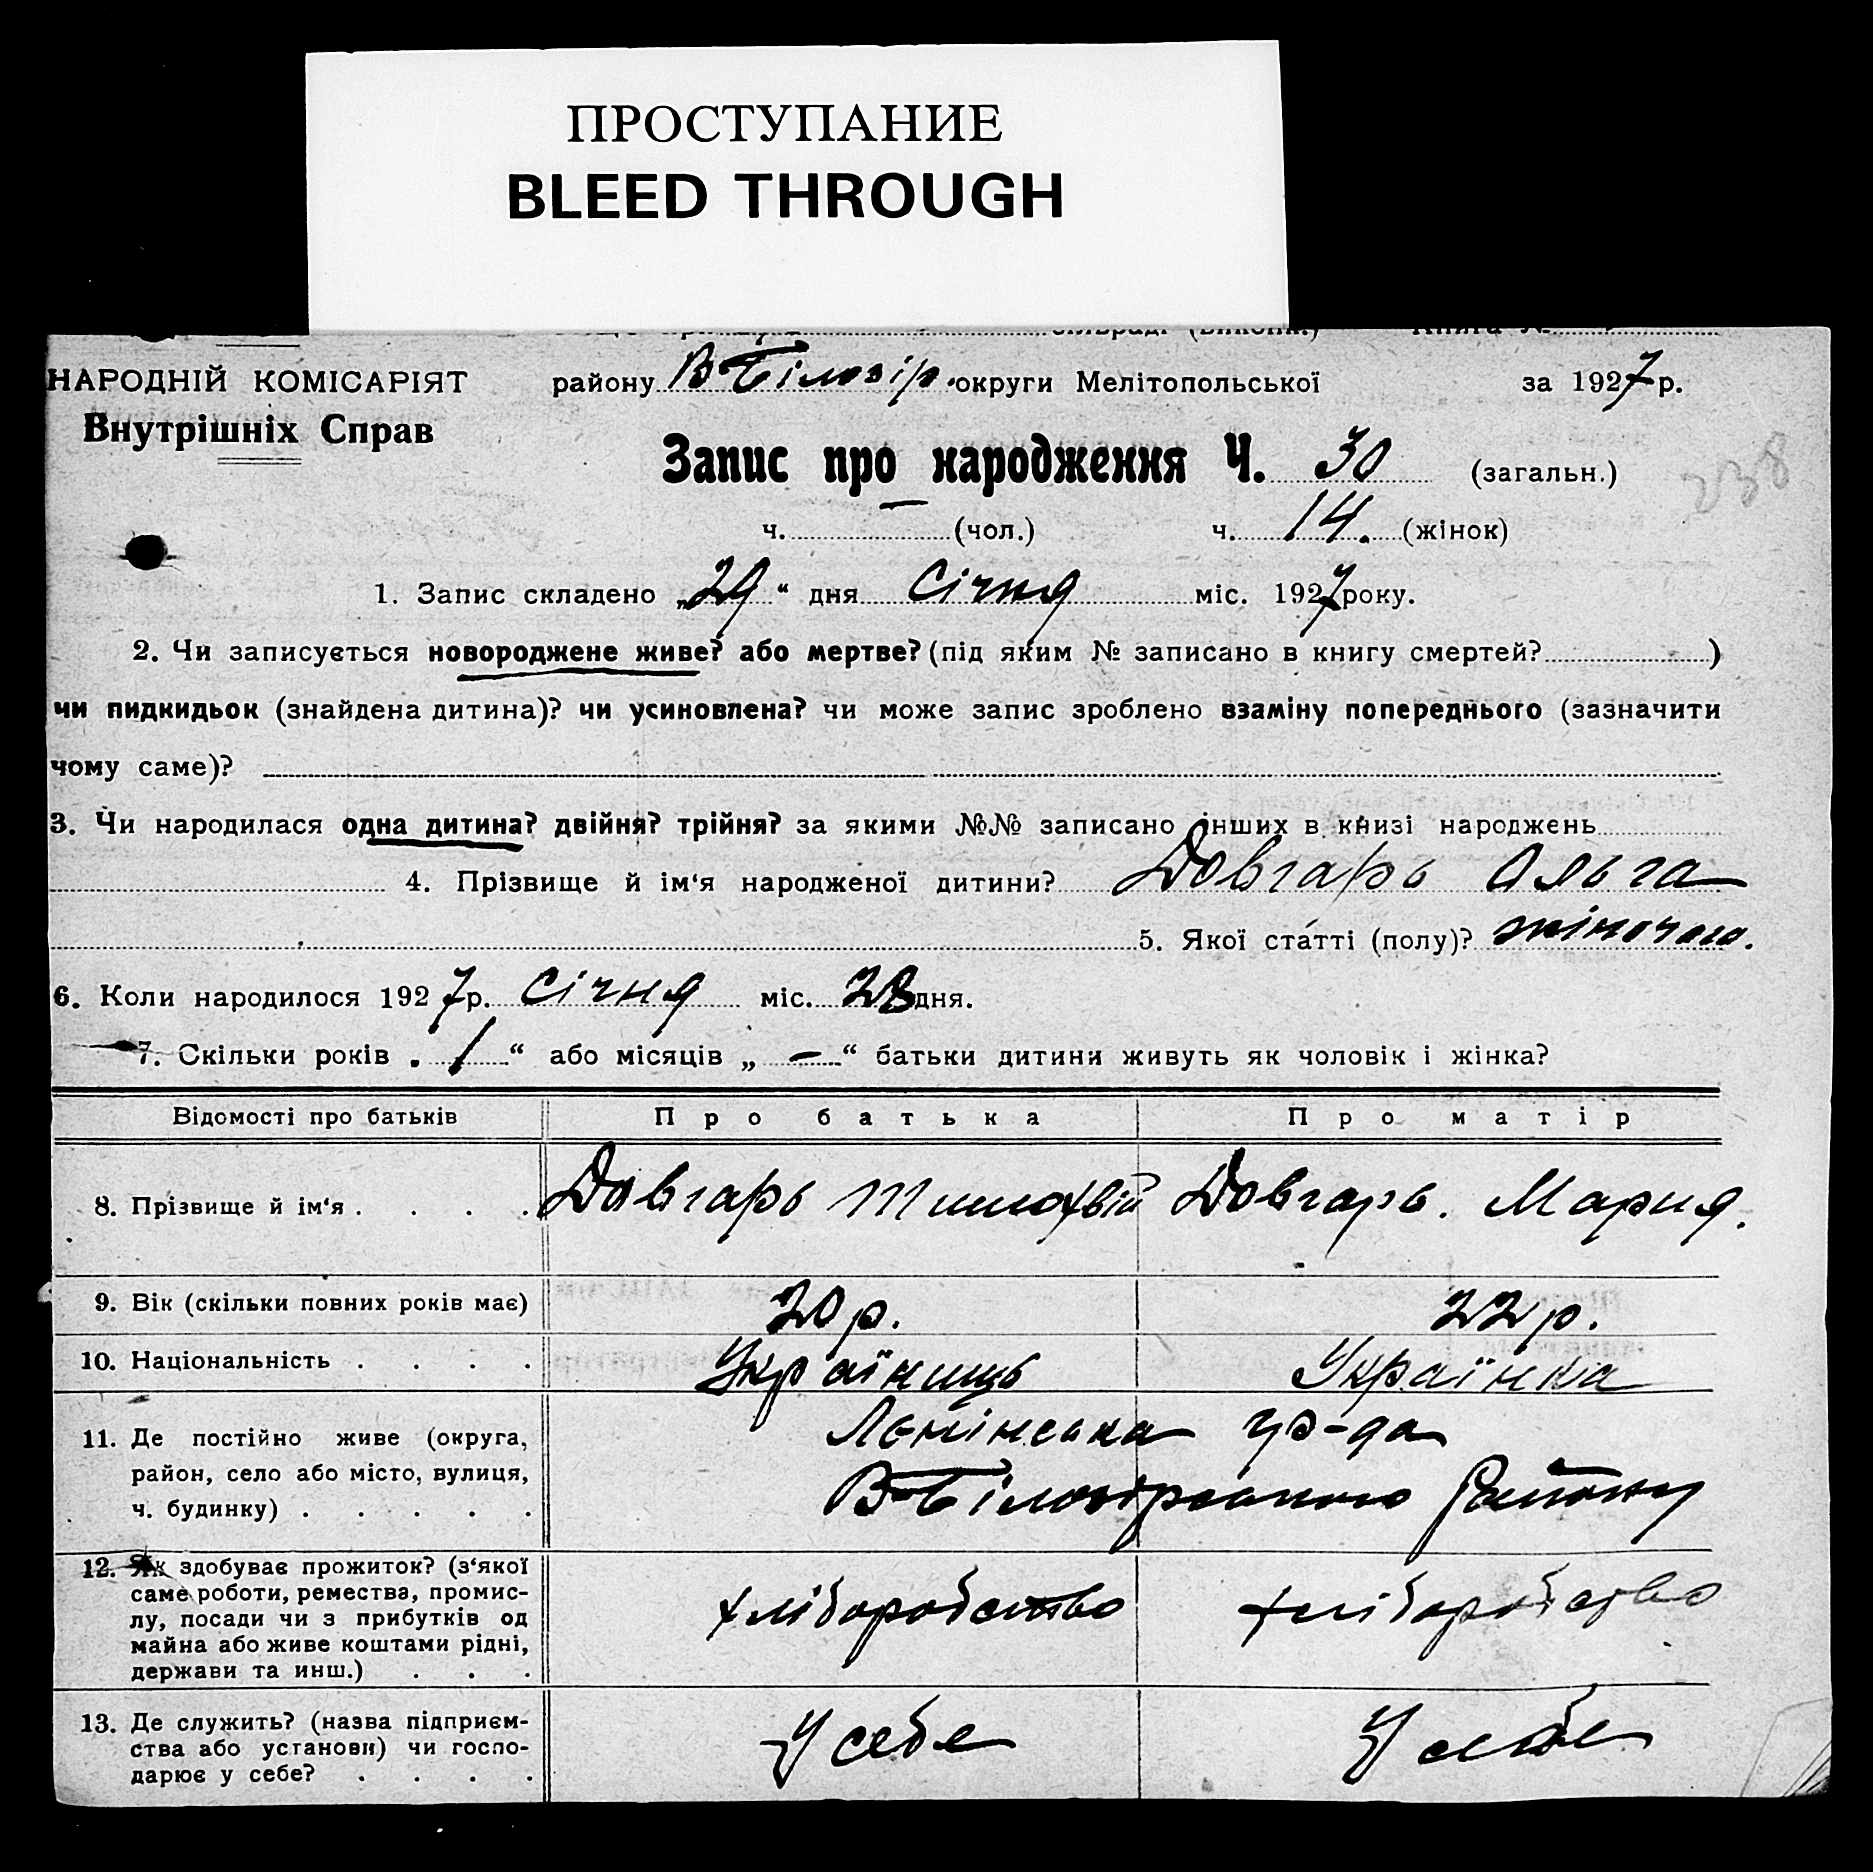 ПРОСТУПАНИЕ
BLEED THROUGH
НАРОДНІЙ КОМІСАРІЯТ району В-Білозір. округи Мелітопольської за 1927 р.
Внутрішніх Справ
Запис про народження Ч. 30 (загальн.)
238
ч. — (чол.) ч. 14. (жінок)
1. Запис складено „29“ дня Січня міс. 1927 року.
2. Чи записується новороджене живе? або мертве? (під яким № записано в книгу смертей? )
чи пидкидьок (знайдена дитина)? чи усиновлена? чи може запис зроблено взаміну попереднього (зазначити
чому саме)?
3. Чи народилася одна дитина? двійня? трійня? за якими №№ записано інших в книзі народжень
4. Прізвище й ім‘я народженої дитини? Довгарь Ольга
5. Якої статті (полу)? жіночого.
6. Коли народилося 1927 р. Січня міс. 28 дня.
7. Скільки років „1“ або місяців „—“ батьки дитини живуть як чоловік і жінка?
Відомості про батьків Про батька Про матір
8. Прізвище й ім‘я . . . . Довгарь Тимофвій Довгарь. Мария.
9. Вік (скільки повних років має) 20 р. 22 р.
10. Національність . . . . Україниць Українка
11. Де постійно живе (округа,
район, село або місто, вулиця,
ч. будинку) . . . . .
Лєнінська
В-Білозірського Району
12. Як здобуває прожиток? (з‘якої
саме роботи, ремества, промис-
лу, посади чи з прибутків од
майна або живе коштами рідні,
держави та инш.) . . .
хліборобство хліборобство
13. Де служить? (назва підприєм-
ства або установи) чи госпо-
дарює у себе? . . . .
У себе У себе